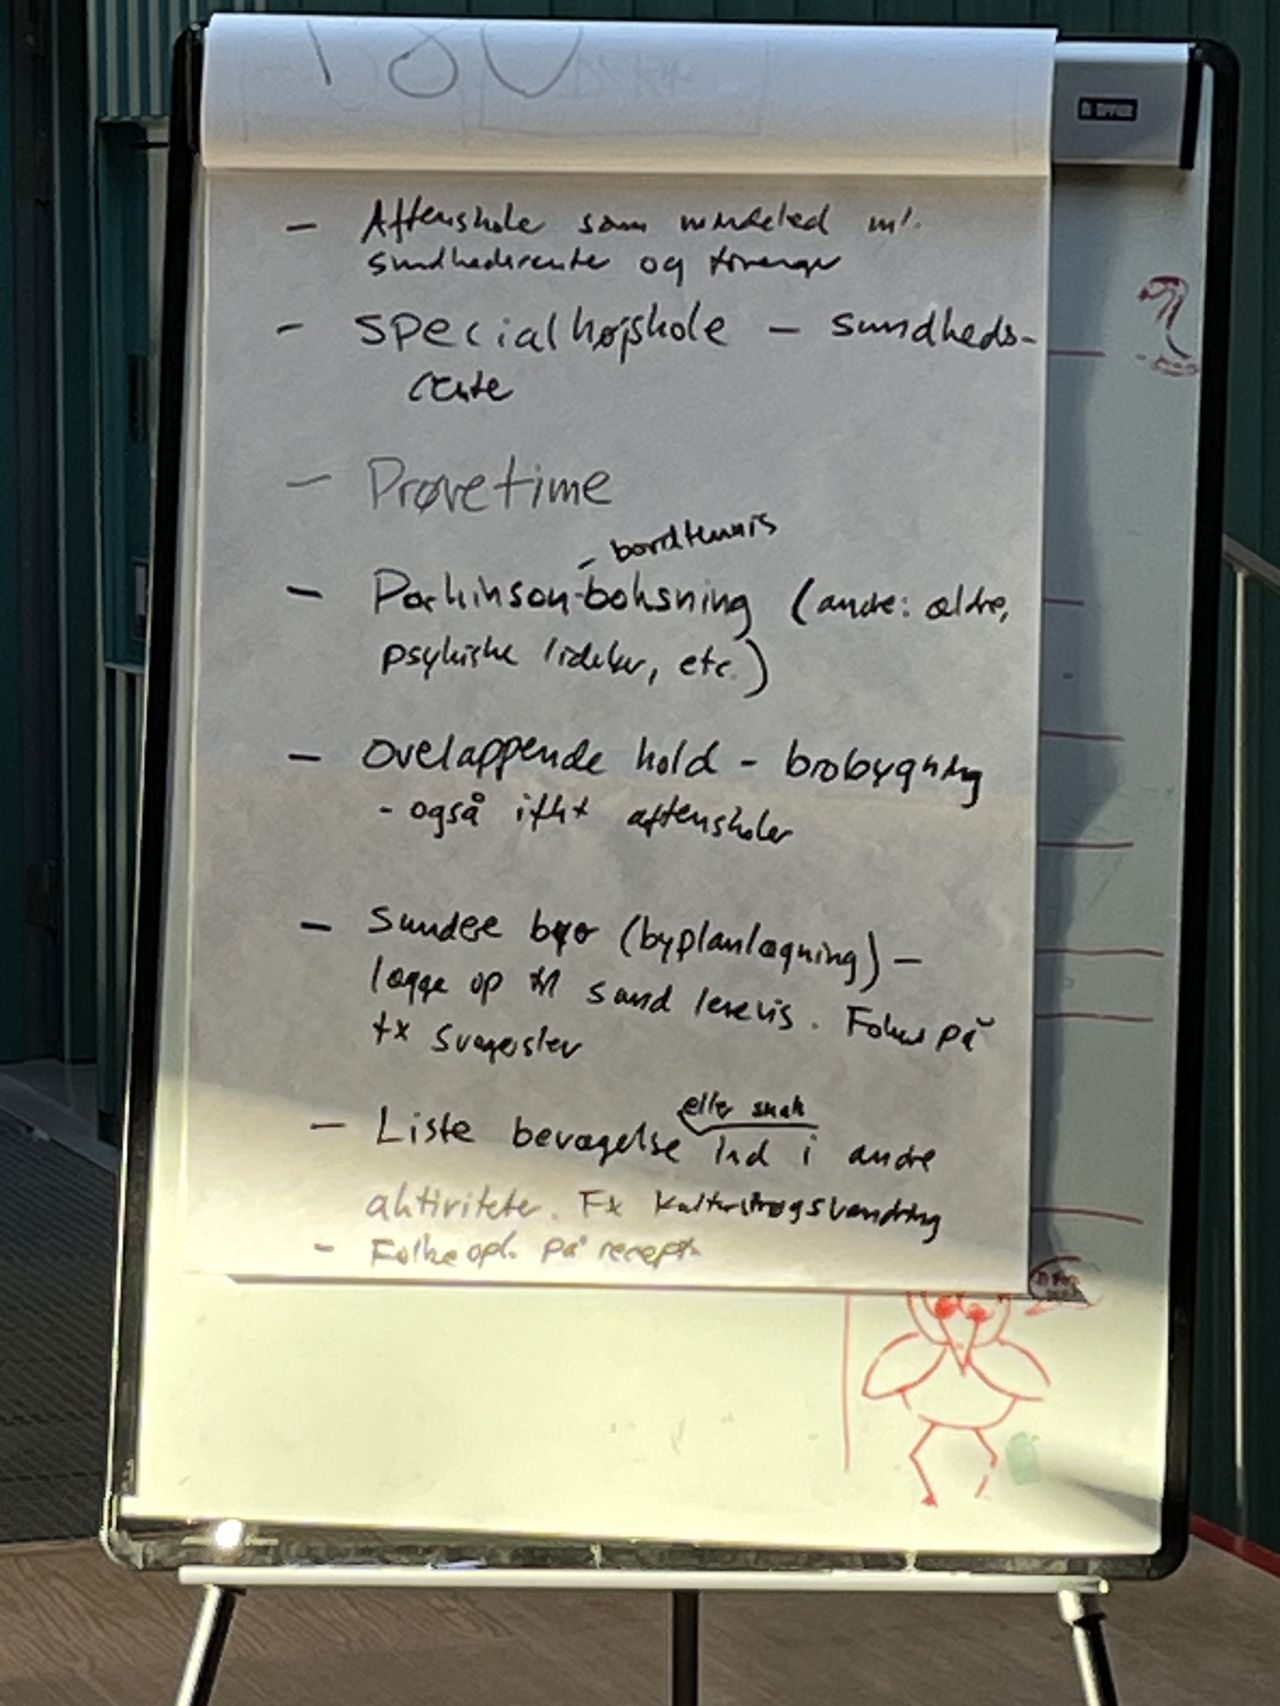 180
- Aftenskole som mindeled m/.
sundhedscenter og
- Specialhøjskole - sundheds-
center
- Prøvetime
- bordtennis
- Parkinson-boksning (andre: ældre,
psykiske lidelser, etc.)
- Overlappende hold - brobygning
- også ifht aftenskoler
- Sundere byer (byplanlægning) -
lægge op til sund levevis. Fokus på
fx Svogerslev
eller snak
- Liste bevægelse ind i andre
aktiviteter. Fx Kulturstrøgsvandring
- Folkeopl. på recept